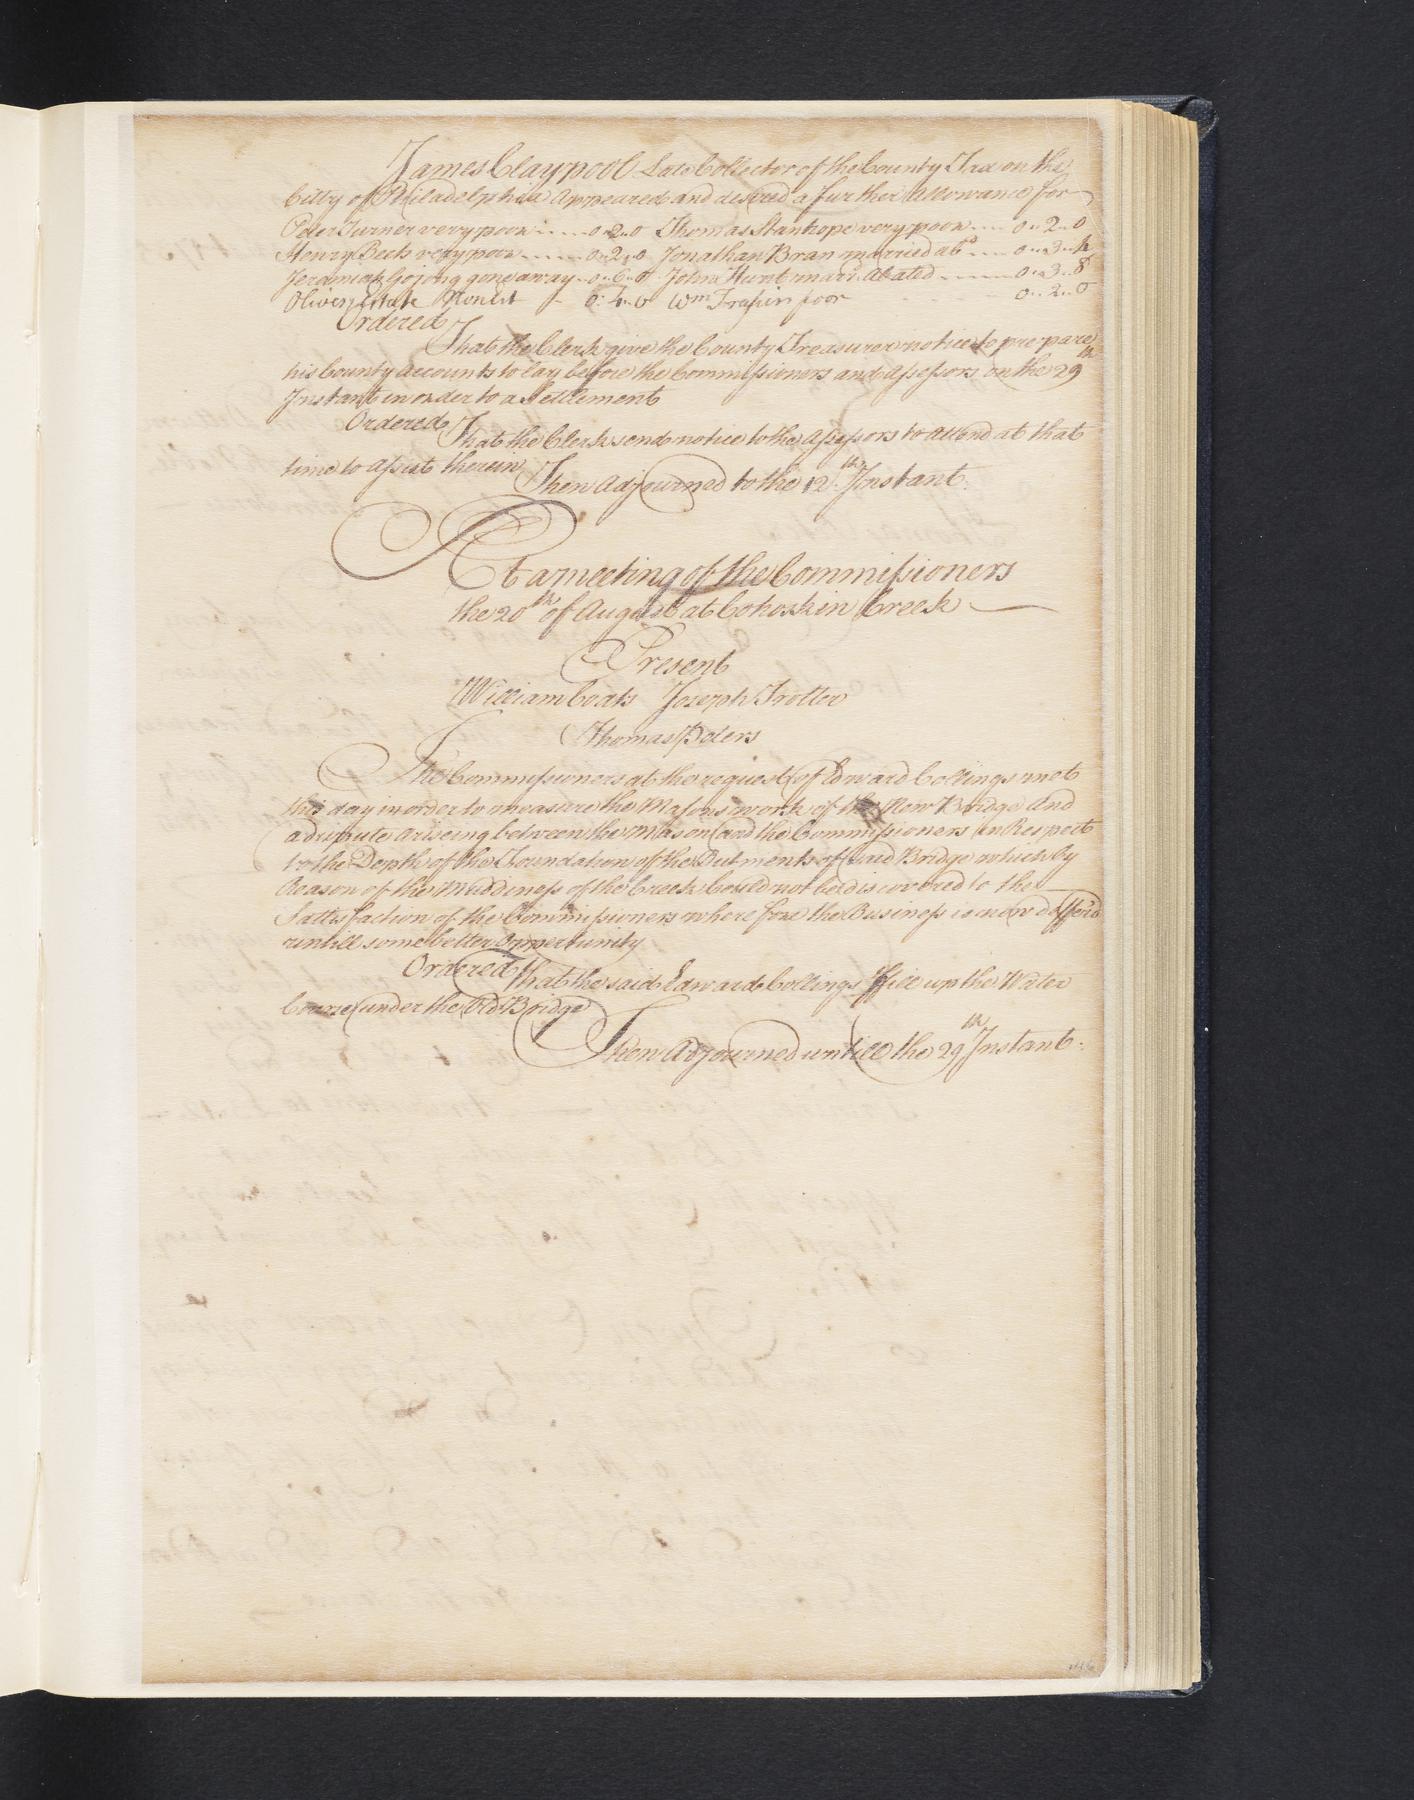 James Claypool Late Collector of the County Tax on the
Citty of Philadelphia Appeared and desired a further Allowance for
Peter Turner very poor ..... 0..2..0 Thomas Stanhope very poor .... 0..2..0
Henry Beck very poor ...... 0..2..0 Jonathan Bran married abd .... 0..3..4
Jeremiah gone away .. 0..6..0 John Hunt marr. Abated ...... 0..3..8
Oliver 0..4..0 Wm poor 0..2..0
Ordered
That the Clerk give the County Treasurer notice to prepare
his County Accounts to lay before the Commissioners and Assessors on the 29th
Instant in order to a Settlement
Ordered
That the Clerk send notice to the Assessors to Attend at that
time to Assist therein
Then Adjourned to the 12th Instant.
At a meeting of the Commissioners
the 20th of August at Cohoskin Creek
Present
William Coats Joseph Trotter
Thomas Peters
The Commissioners at the request of Edward Collings met
this day in order to measure the Masons work of the New Bridge And
a dispute Ariseing between the Mason and the Commissioners in Respect
to the Depth of the Foundation of the Butments of said Bridge which by
Reason of the Muddiness of the Creek Could not be discovered to the
Sattisfaction of the Commissioners where fore the Business is now
untill some better Oppertunity
Ordered That the said Edward Collings fill up the Water
Course under the Old Bridge
Then Adjourned untill the 29th Instant.
146